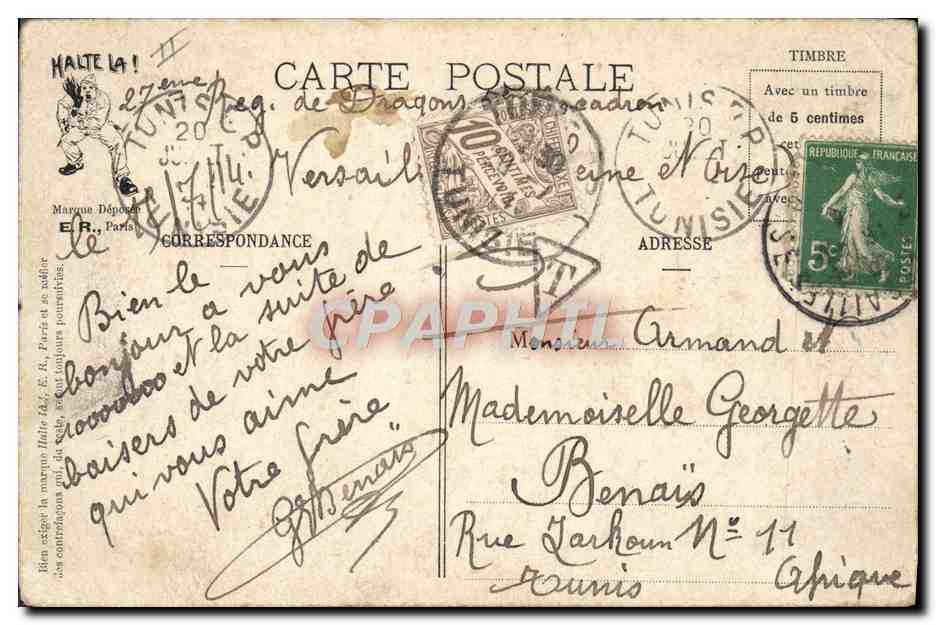 HALTE LA !
II
CARTE POSTALE
27ème Reg. de Dragons escadron
Versailles Seine et Oise
le 17/7/14.
Marque Déposée
E.R., Paris
CORRESPONDANCE
Bien le
bonjour a vous
et la suite de
1000000
baisers de votre frère
qui vous aime
Votre frère
G. Benaïs
Bien exiger la marque Halte là!, E. R., Paris et se méfier
des contrefaçons qui, du reste, seront toujours poursuivies.
TIMBRE
Avec un timbre
de 5 centimes
REPUBLIQUE FRANÇAISE
5c
POSTES
10
CENTIMES
A PERCEVOIR
POSTES
TUNIS R.P.
20
TUNISIE
TUNIS R.P.
20
TUNISIE
TUNISIE
T
VERSAILLES
ADRESSE
CPAPHIL
Monsieur Armand et
Mademoiselle Georgette
Benaïs
Rue Zarkoun No 11
Tunis Afrique